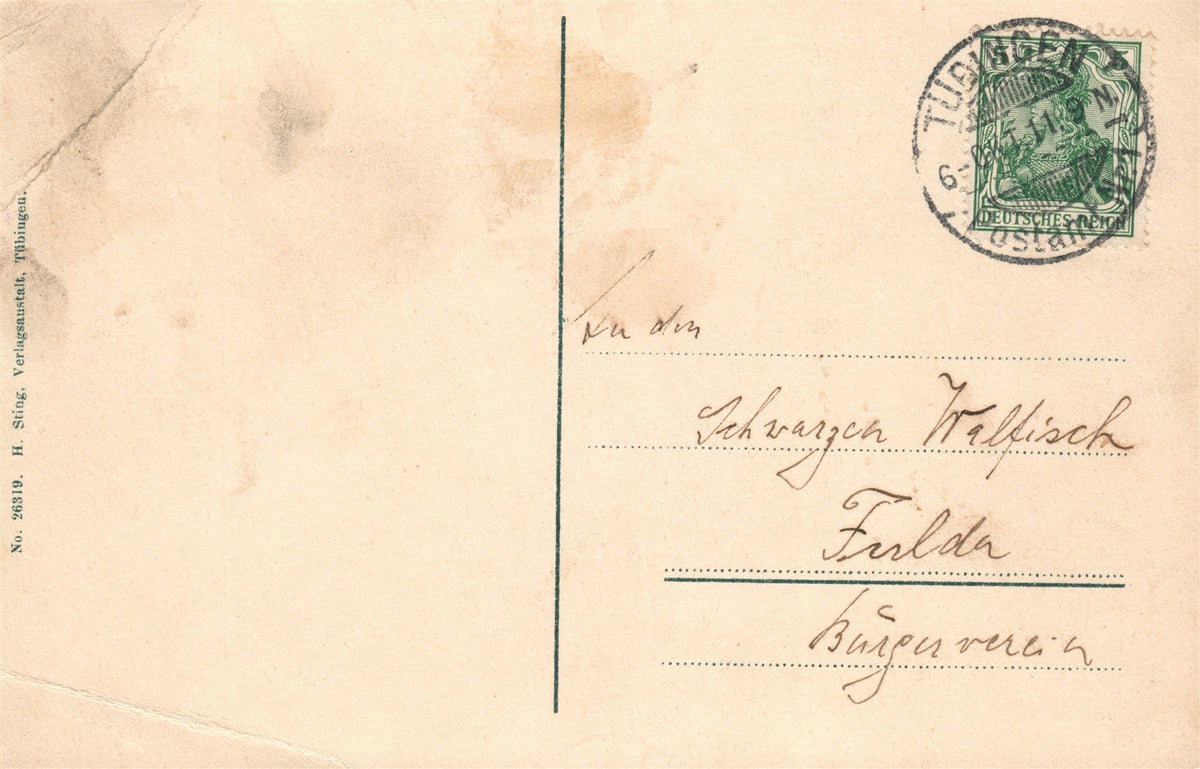 No. 26319. H. Sting, Verlagsanstalt, Tübingen.
TÜBINGEN
6 OKT. 11. 9 N.
Postamt
DEUTSCHES REICH
An den
Schwarzen Walfisch
Fulda
Bürgerverein